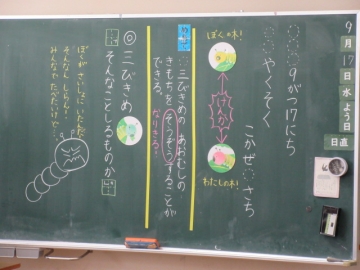 9月17日水よう日
日直
9がつ17にち
やくそく
こかぜ さち
ぼくの木!
けんか
わたしの木!
三びきめの あおむしの
きもちを そうぞうすることが
できる。
なりきる
◎三びきめ
そんなことしるものか
ぼくが さいしょに いたんだ
そんなん しらん!
みんなで たべたいけど…